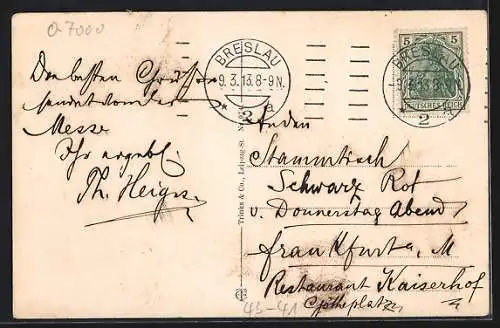 O-7000
BRESLAU
9.3.13.8-9N.
* 2 a
5 5
DEUTSCHES REICH
BRESLAU
2
Den besten Gruß
sendet von der
Messe
Ihr ergeb.
Th.
Trinks & Co., Leipzig-St.
An den
Stammtisch
Schwarz Rot
v. Donnerstag Abend
Frankfurt a. M
Restaurant Kaiserhof
Götheplatz
43-41